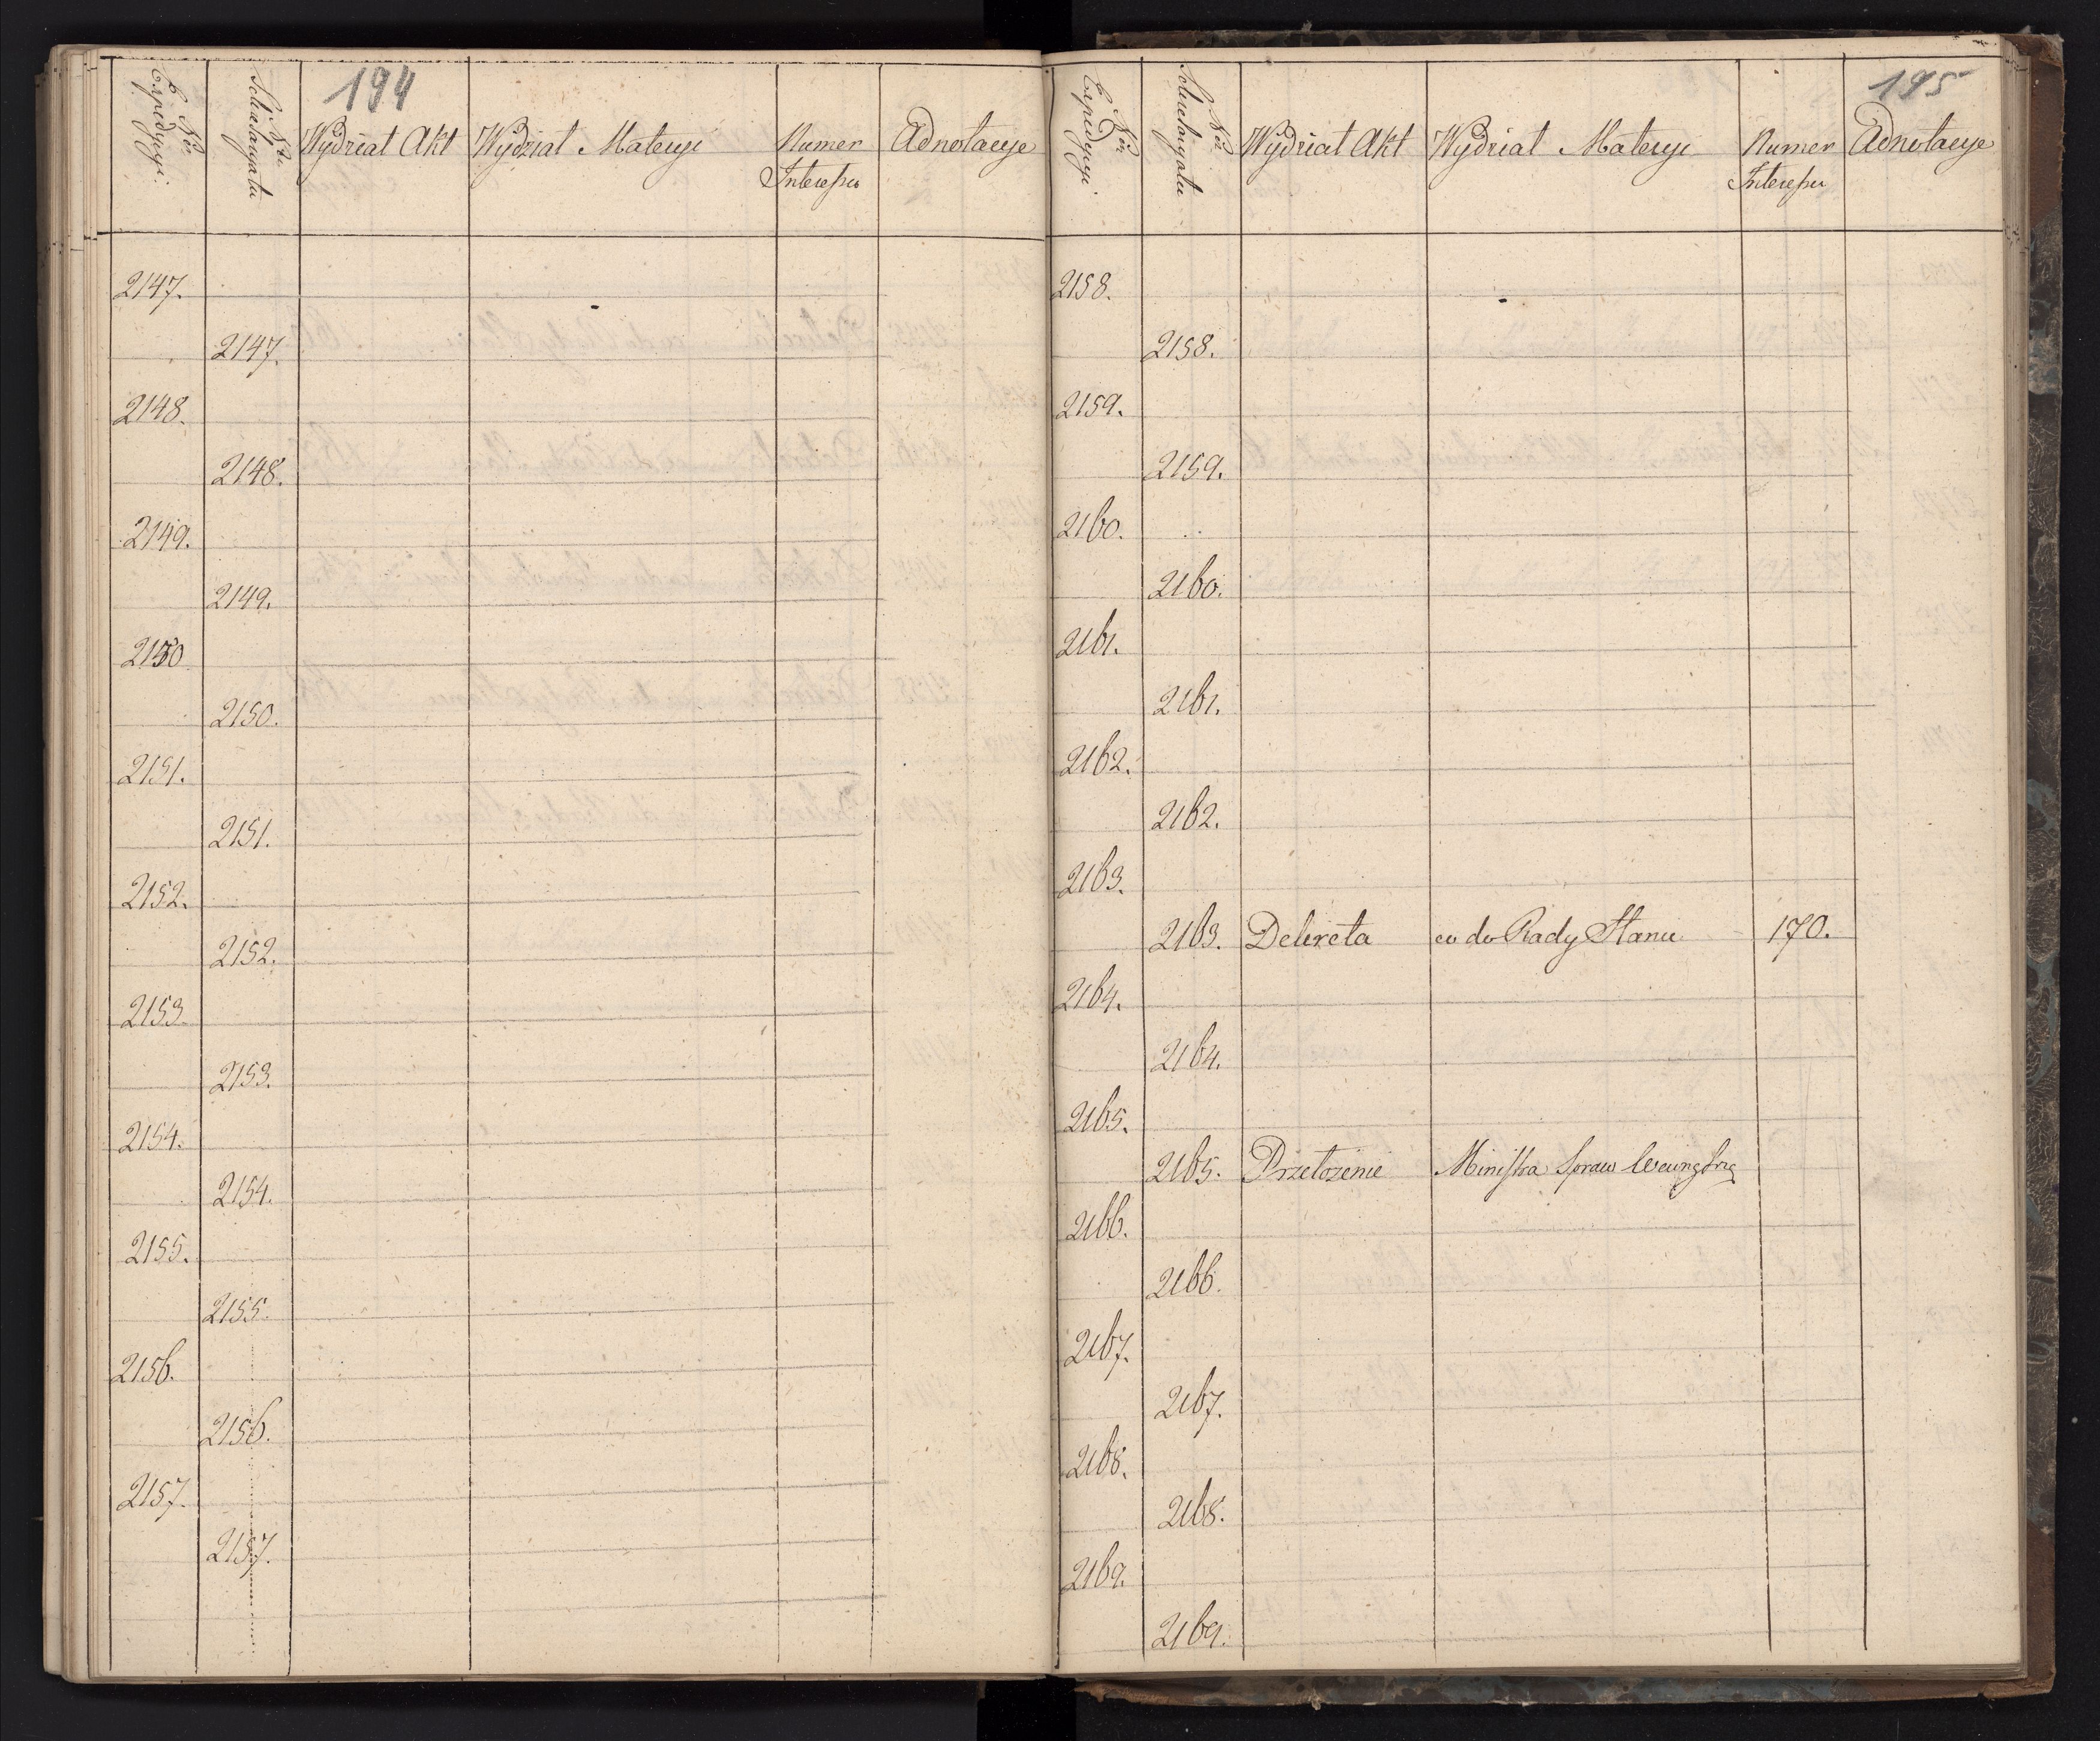 194
Nro Expedycyi.
Nro Sekretaryatu
Wydział Akt
Wydział Materyi
Numer Interessu
Adnotacye
2147.
2147.
2148.
2148.
2149.
2149.
2150
2150.
2151.
2151.
2152.
2152.
2153
2153.
2154.
2154.
2155.
2155.
2156.
2156.
2157.
2157.
195
Nro Expedycyi
Nro Sekretaryatu
Wydział Akt
Wydział Materyi
Numer Interessu
Adnotacye
2158.
2158.
2159.
2159.
2160.
2160.
2161.
2161.
2162.
2162.
2163.
2163. Dekreta co do Rady Stanu 170.
2164.
2164.
2165.
2165. Przełożenie Ministra Spraw Wewnętrz
2166.
2166.
2167.
2167.
2168.
2168.
2169.
2169.